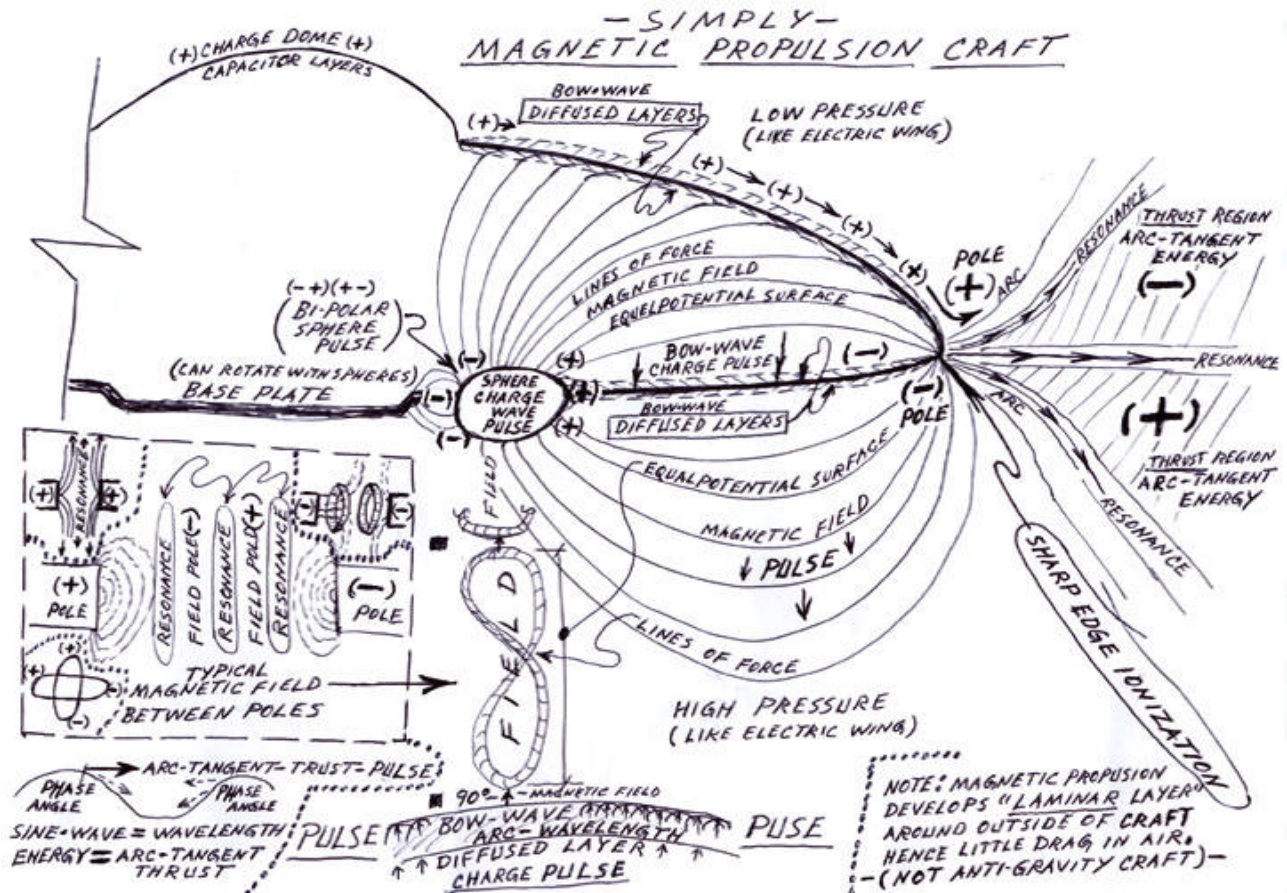 -SIMPLY-
MAGNETIC PROPULSION CRAFT
(+) CHARGE DOME (+)
CAPACITOR LAYERS
BOW-WAVE
DIFFUSED LAYERS
(+)
LOW PRESSURE
(LIKE ELECTRIC WING)
(+)
(+)
(+)
(+)
POLE
(+)
ARC
RESONANCE
THRUST REGION
ARC-TANGENT
ENERGY
(-)
LINES OF FORCE
MAGNETIC FIELD
EQUELPOTENTIAL SURFACE
(-+)(+-)
(BI-POLAR
SPHERE
PULSE)
(CAN ROTATE WITH SPHERES)
BASE PLATE
(-)
(-)
(-)
SPHERE
CHARGE
WAVE
PULSE
(+)
(+)
(+)
BOW-WAVE
CHARGE PULSE
(-)
BOW-WAVE
DIFFUSED LAYERS
(-)
POLE
RESONANCE
ARC
(+)
THRUST REGION
ARC-TANGENT
ENERGY
RESONANCE
EQUALPOTENTIAL SURFACE
MAGNETIC FIELD
PULSE
LINES OF FORCE
SHARP EDGE IONIZATION
HIGH PRESSURE
(LIKE ELECTRIC WING)
FIELD
FIELD
(+)
RESONANCE
(+)
(-)
(-)
(+)
POLE
RESONANCE
FIELD POLE(-)
RESONANCE
FIELD POLD(+)
RESONANCE
(-)
POLE
(+)
(+)
(-)
(-)
TYPICAL
MAGNETIC FIELD
BETWEEN POLES
ARC-TANGENT-TRUST-PULSE
PHASE
ANGLE
PHASE
ANGLE
SINE-WAVE = WAVELENGTH
ENERGY = ARC-TANGENT
THRUST
90°--MAGNETIC FIELD
PULSE
BOW-WAVE
ARC-WAVELENGTH
PUSE
DIFFUSED LAYER
CHARGE PULSE
NOTE: MAGNETIC PROPUSION
DEVELOPS "LAMINAR LAYER"
AROUND OUTSIDE OF CRAFT
HENCE LITTLE DRAG IN AIR.
-(NOT ANTI-GRAVITY CRAFT)-